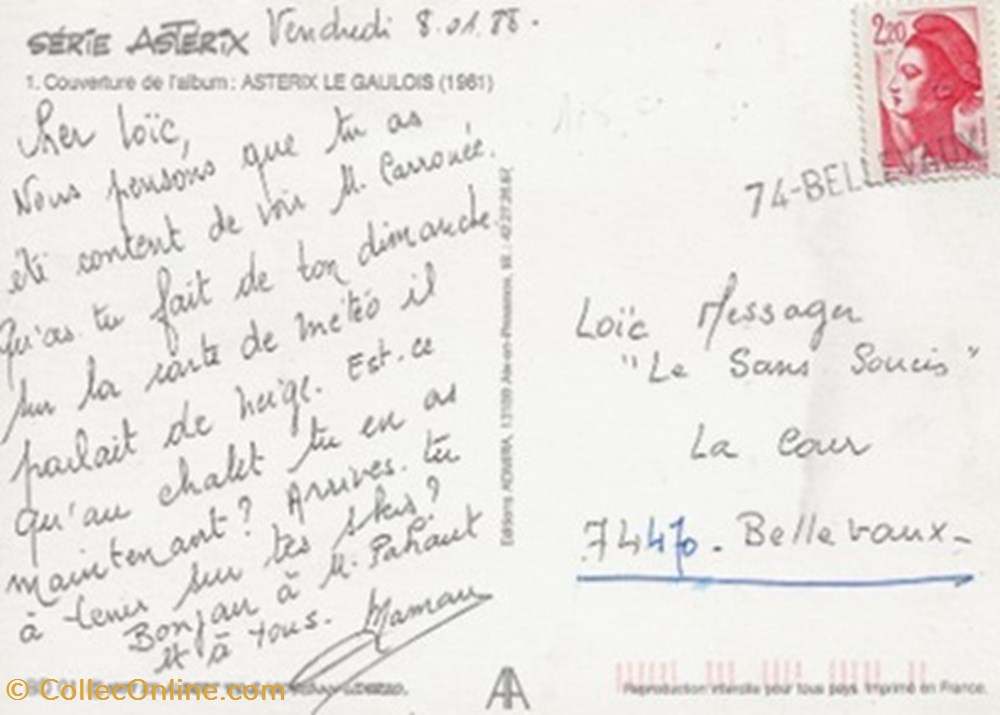 SÉRIE ASTÉRIX Vendredi 8.01.88.
1. Couverture de l'album : ASTERIX LE GAULOIS (1961)
Cher Loïc,
Nous pensons que tu as
été content de voir M. Carrouée.
Qu'as-tu fait de ton dimanche.
Sur la carte de météo il
parlait de neige. Est-ce
qu'au chalet tu en as
maintenant ? Arrives-tu
à tenir sur tes skis ?
Bonjour à M. Pahaut
et à tous. Maman
2,20
74-BELLEVAUX
Loïc Messager
"Le Sans Soucis"
La Cour
74470. Bellevaux-
Editions ADMIRA, 13100 Aix-en-Provence,
Reproduction interdite pour tous pays. Imprimé en France.
© CollecOnline.com